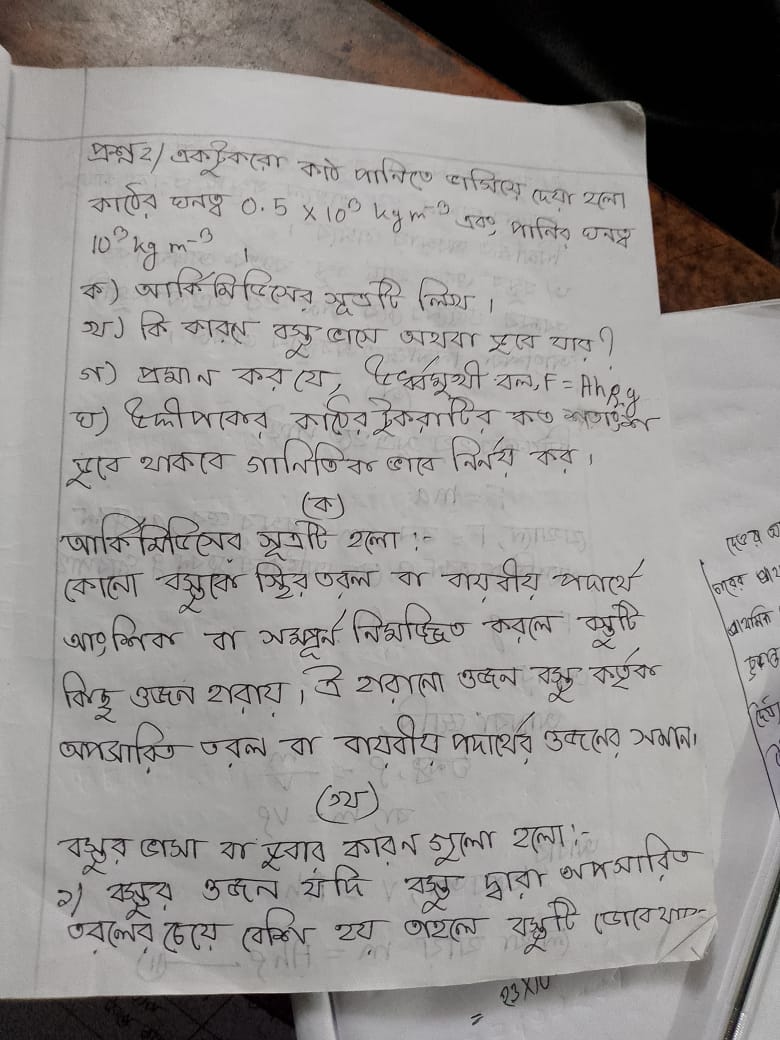 প্রশ্ন ২/ একটুকরো কাঠ পানিতে ভাসিয়ে দেয়া হলো
কাঠের ঘনত্ব 0.5 × 10³ kg m⁻³ এবং পানির ঘনত্ব
10³ kg m⁻³ ।
ক) আর্কিমিডিসের সূত্রটি লিখ ।
খ) কি কারণে বস্তু ভাসে অথবা ডুবে যায় ?
গ) প্রমান কর যে, উর্ধ্বমুখী বল, F = Ahρg
ঘ) উদ্দীপকের কাঠের টুকরাটির কত শতাংশ
ডুবে থাকবে গানিতিক ভাবে নির্নয় কর ।
(ক)
আর্কিমিডিসের সূত্রটি হলো :-
কোনো বস্তুকে স্থির তরল বা বায়বীয় পদার্থে
আংশিক বা সম্পূর্ন নিমজ্জিত করলে বস্তুটি
কিছু ওজন হারায় । ঐ হারানো ওজন বস্তু কর্তৃক
অপসারিত তরল বা বায়বীয় পদার্থের ওজনের সমান।
(খ)
বস্তুর ভাসা বা ডুবার কারণ গুলো হলো :-
১) বস্তুর ওজন যদি বস্তু দ্বারা অপসারিত
তরলের চেয়ে বেশি হয় তাহলে বস্তুটি
প্রাথমিক
= 23×10